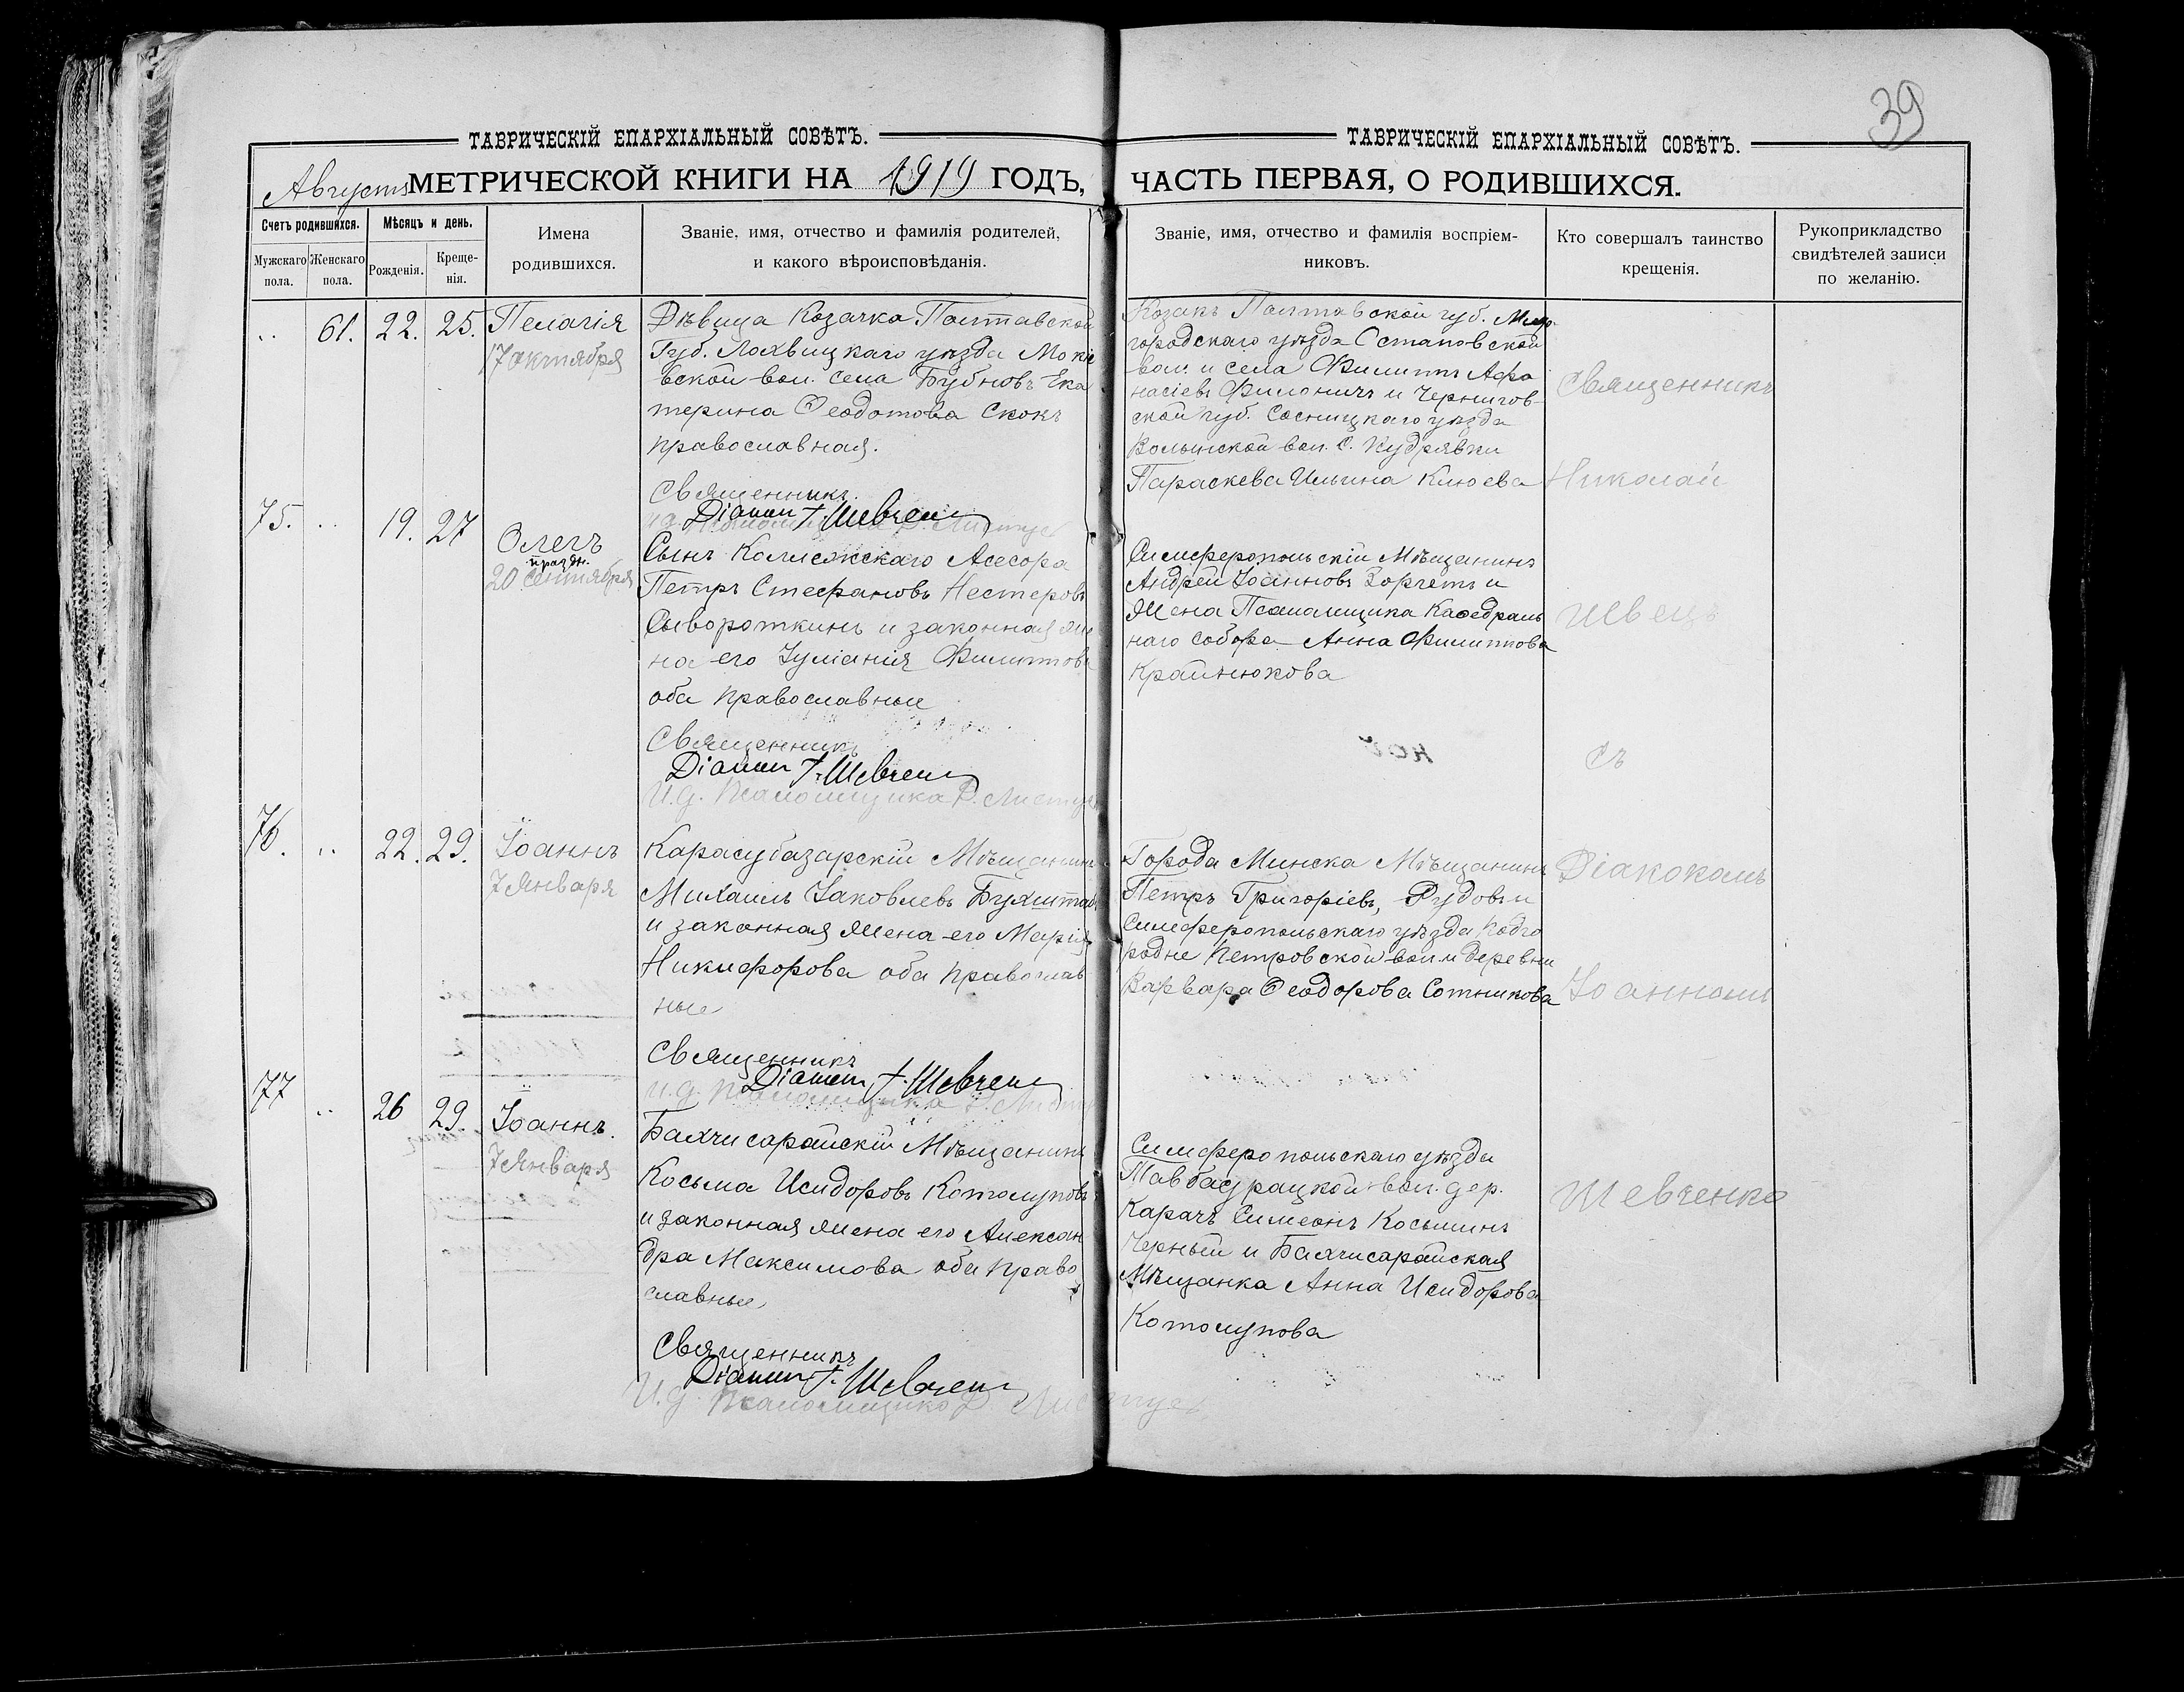 39
ТАВРИЧЕСКІЙ ЕПАРХІАЛЬНЫЙ СОВѢТЪ.
Августъ МЕТРИЧЕСКОЙ КНИГИ НА 1919 ГОДЪ,
Счетъ родившихся.
Мѣсяцъ и день.
Имена родившихся.
Званіе, имя, отчество и фамилія родителей,
и какого вѣроисповѣданія.
Мужскаго пола.
Женскаго пола.
Рожденія.
Креще-
нія.
61. 22. 25. Пелагія
17 октября
Дѣвица Козачка Полтавской
Губ. Лохвицкаго уѣзда Мокіе
вской вол. села Бубновъ Ека
терина Ѳеодотова Скокъ
православная.
Священникъ
Діакон І. Шевчен
75. 19. 27 Олегъ
празд.
20 сентября
Сынъ Коллежскаго Асесора
Петръ Стефановъ Нестеровъ
Сывороткинъ и законная же
на его Іуліанія Филиппова
оба православные
Священникъ
Діакон І. Шевчен
И.д. Псаломщика
76. 22. 29. Іоаннъ
7 Января
Карасубазарскій Мѣщанинъ
Михаилъ Іаковлевъ Бухштаб
и законная жена его Марія
Никифорова оба православ
ные
Священникъ
Діакон І. Шевчен
И.д. Псаломщика
77 26 29. Іоаннъ.
7 Января
Бахчисарайскій Мѣщанинъ
Косьма Исидоровъ Котолуповъ
и законная жена его Алексан
дра Максимова оба право
славные
Священникъ
Діакон І. Шевчен
И.д. Псаломщика
ТАВРИЧЕСКІЙ ЕПАРХІАЛЬНЫЙ СОВѢТЪ.
ЧАСТЬ ПЕРВАЯ, О РОДИВШИХСЯ.
Званіе, имя, отчество и фамилія воспріем-
никовъ.
Кто совершалъ таинство
крещенія.
Рукоприкладство
свидѣтелей записи
по желанію.
Козакъ Полтавской губ. Мир-
городскаго уѣзда Остаповской
вол. и села Филиппъ Афа
насіевъ Филоничъ и Чернигов-
ской губ. Сосницкаго уѣзда
Волынской вол. С. Кудрявки
Параскева Ильина Клюева
Симферопольскій Мѣщанинъ
Андрей Іоанновъ и
Жена Псаломщика Каѳедраль
наго собора Анна Филиппова
Крайнюкова
Города Минска Мѣщанинъ
Петръ Григоріевъ, Рудовъ и
Симферопольскаго уѣзда Подго
родне Петровской вол. и деревни
Варвара Ѳеодорова Сотникова
Симферопольскаго уѣзда
вол. дер.
Карачъ Симеонъ Косьминъ
Черный и Бахчисарайская
Мѣщанка Анна Исидорова
Котолупова
Священникъ
Николай
Швецъ
съ
Діакономъ
Іоанномъ
Шевченко